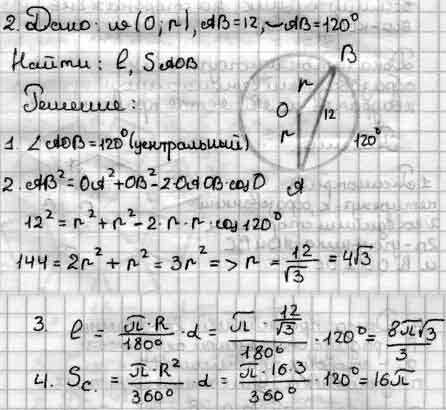 2. Дано: ω(O; r), AB=12, ◡AB=120°
Найти: l, S AOB
Решение:
B
r
O
r
12
120°
A
1. ∠AOB=120° (центральный)
2. AB²=OA²+OB²-2·OA·OB·cos O
12²=r²+r²-2·r·r·cos 120°
144=2r²+r²=3r²=>r=12/√3=4√3
3. l=π·R/180°·α=π·12/√3/180°·120°=8π√3/3
4. Sс.=π·R²/360°·α=π·16·3/360°·120°=16π